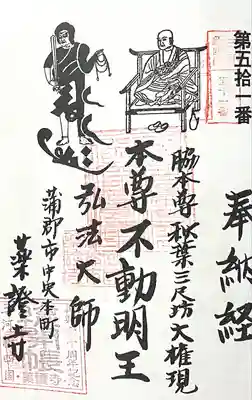 第五拾一番
奉納経
脇本尊秋葉三尺坊大権現
本尊不動明王
弘法大師
蒲郡市中央本町
薬證寺